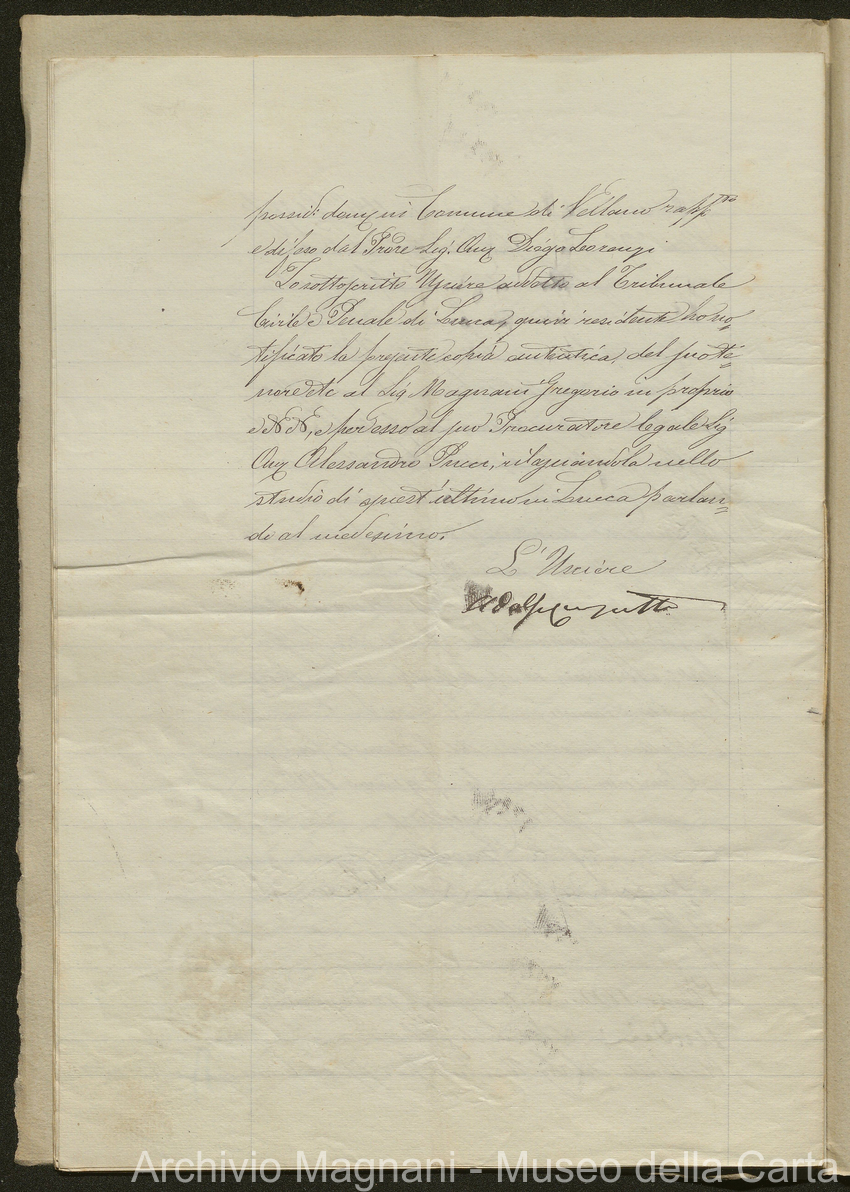 possid: dom: in Comune di Vellano rapp.to
e difeso dal Prore Sig. Avv. Diego Lorenzi
Io sottoscritto Usciere addetto al Tribunale
Civile e Penale di Lucca, quivi residente ho no=
tificato la presente copia autentica, del suo te=
nore etc al Sig. Magnani Gregorio in proprio
e NN, e per esso al suo Procuratore legale Sig.
Avv Alessandro Pucci, rilasciandola nello
studio di quest'ultimo in Lucca parlan=
do al medesimo.
L'Usciere
Archivio Magnani - Museo della Carta